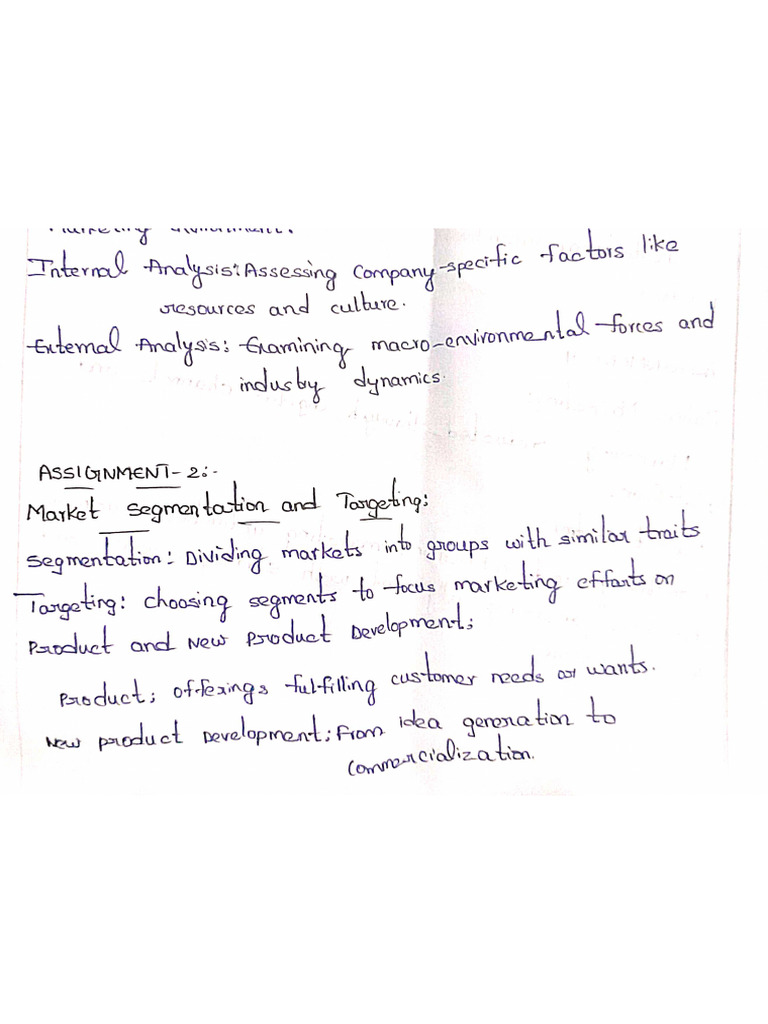 Internal Analysis: Assessing Company-specific factors like
resources and culture.
External Analysis: Examining macro-environmental forces and
industry dynamics.
ASSIGNMENT-2:-
Market segmentation and Targeting:
segmentation: Dividing markets into groups with similar traits
Targeting: choosing segments to focus marketing efforts on
Product and New Product Development;
Product; offerings fulfilling customer needs or wants.
New product Development; From idea generation to
commercialization.